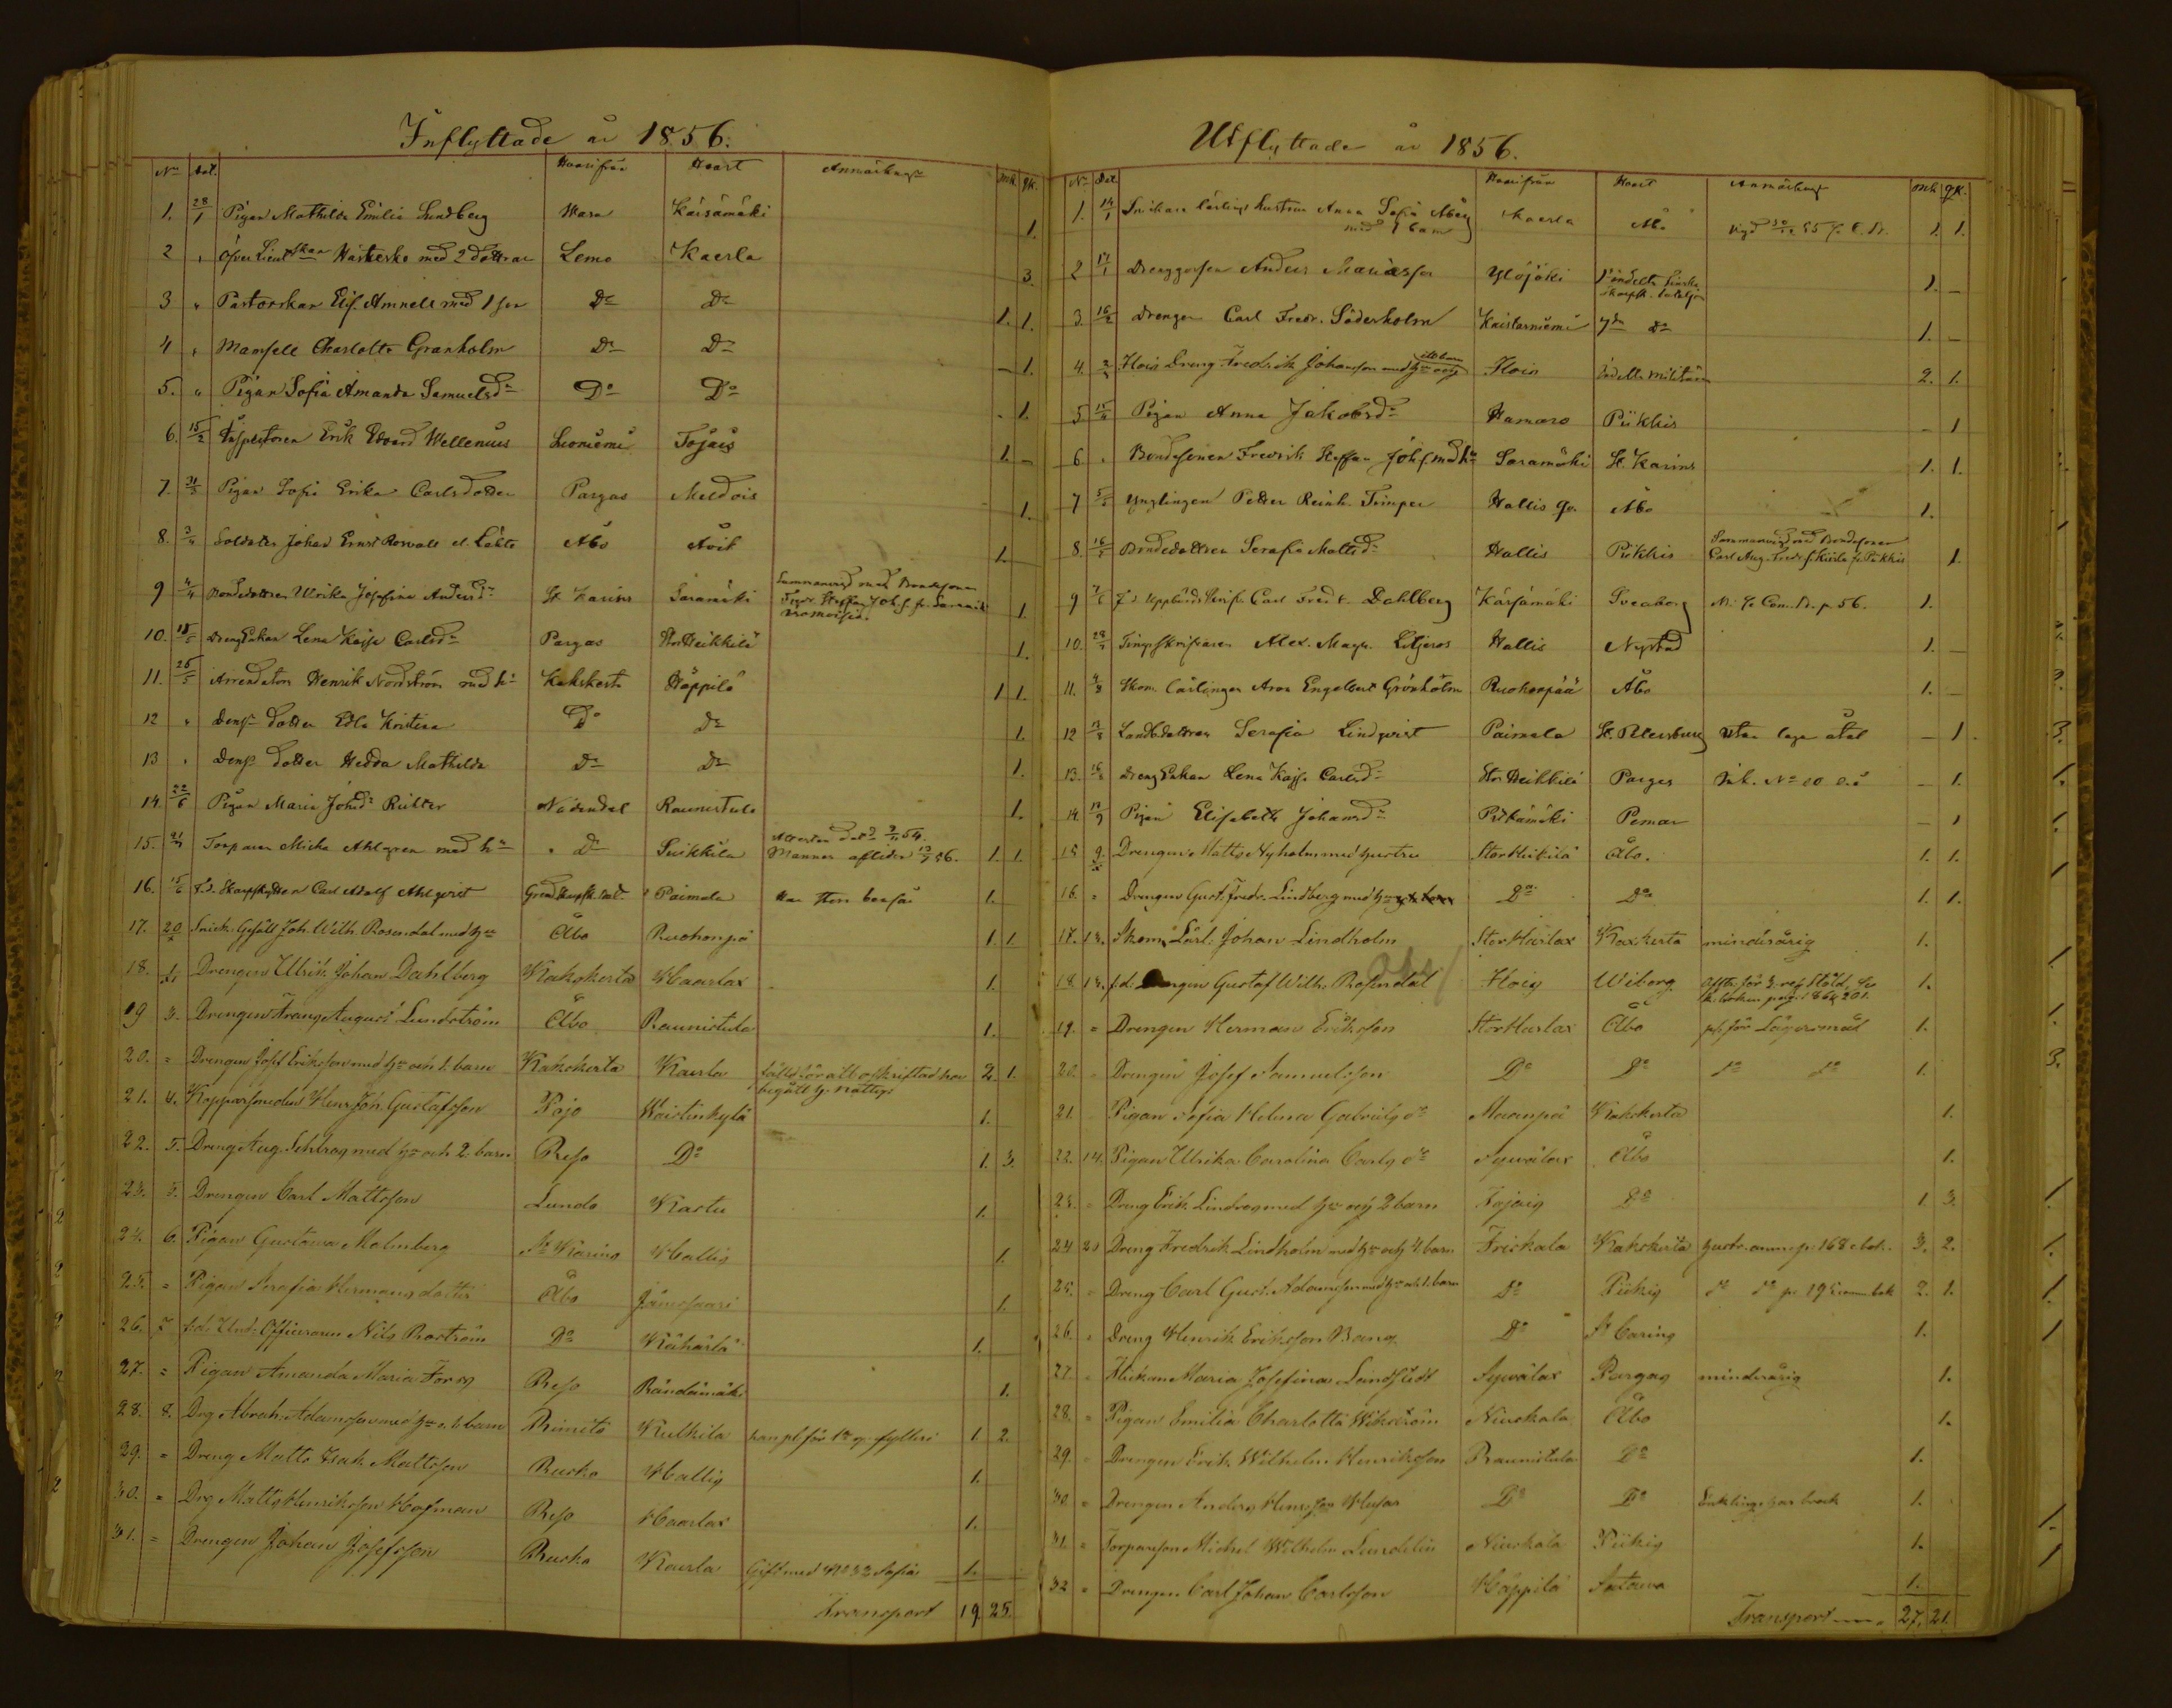 Inflyttade år 1856.
No Dat. Hvarifrån Hvart Anmärkngr Mk. Qk.
1. 28/1 Pigan Mathilda Emilia Lundberg Wasa Kärsämäki 1.
2 " Öfver Lieutskan Hästesko med 2 döttrar Lemo Kaerla 3.
3 " Pastorskan Elis. Amnell med 1 son Do Do 1. 1.
4 " Mamsell Charlotte Granholm Do Do 1.
5. " Pigan Sofia Amanda Samuelsdr Do Do 1.
6. 15/2 Inspectoren Erik Edvard Wellenius Tojais 1.
7. 31/3 Pigan Sofia Erika Carlsdotter Pargas Meldois 1.
8. Soldaten Johan Ernst Rosvall Åbo Avik 1.
9 Bondedottren Ulrika Josefina Andersdr St Karins Saramäki Sammanvigd med Bondesonen 1.
10. 18/5 Lena Kajsa Carlsdr Pargas Stor Heikkilä 1.
11. 26/5 Arrendatorn Henrik Nordström med hu Kakskerta Häppilä 1. 1.
12 " Dess dotter Edla Kristina Do Do 1.
13 " Dess dotter Hedda Mathilda Do Do 1.
14. 22/6 Pigan Maria Johsdr Richter Nådendal Raunistula 1.
15. Torparen Micke Ahlgren med hu Do Suikkila Mannen afliden 56. 1. 1.
16. f.d. Skarpskytten Carl Adolf Ahlqvist Paimala 1.
17. 20 Snick. Gesäll Joh. Wilh. Rosendal med hu Åbo Ruohonpä 1. 1.
18. 1. Drengen Ulrik Johan Dahlberg Kakskerta Haarlax 1.
19 3. Drengen Frans August Lundström Åbo Raunistula 1.
20. = Drengen Josef Eriksson med hu och 1. barn Kakskerta Kaerla 2. 1.
21. 4. Kopparsmeden Henr. Joh. Gustafsson Pojo Waistenkylä 1.
22. 5. Dreng Aug. Sehlroos med hu och 2. barn Reso Do 1. 3.
23. 5. Drengen Carl Mattsson Lundo Kastu 1.
24. 6. Pigan Gustava Malmberg St Karins Hallis 1.
25. = Pigan Serafia Hermansdotter Åbo Jänessaari 1.
26. 7 f.d. Und: Officeraren Nils Boström Do Kähärlä 1.
27. = Pigan Amanda Maria Forss Reso Rändämäki 1.
28. 8. Drg Abrah. Adamsson med hu o. 1. barn Rimito Kulkila han pl. för 1a g. fylleri 1. 2.
29. = Dreng Matts Isak Mattsson Rusko Hallis 1.
30. = Drg Matts Henriksson Hofman Reso Haarlax 1.
31. = Drengen Johan Josefsson Rusko Kaerla Gift med No 32 Sofia 1.
Transport 19. 25.
Utflyttade år 1856.
No Dat. Hvarifrån Hvart Anmärkngr Mk. Qk.
1. 14/1 Snickare lärlings hustrun Anna Sofia Åberg Kaerla Åbo 1. 1.
med 1 barn
2 17/1 Drenggossen Anders Mariasson Ylöjoki 1.
3. 16/2 Drengen Carl Fredr. Söderholm Kaistarniemi 7de Do 1.
4. Hois Dreng Fredrik Johansson med hu och ett barn Hois Indelta militären 2. 1.
5 15/4 Pigan Anna Jakobsdr Hamaro Piikkis 1
6. " Bondesonen Fredrik Staffan Johs. med hu Saramäki St. Karins 1. 1.
7 5/5 Ynglingen Petter Reinh. Timper Hallis qv. Åbo 1.
8. 16/5 Bondedottren Serafia Mattsdr Hallis Piikkis Sammanvigd med Bondesonen 1.
9 f.d. Carl Fredr. Dahlberg Kärsämäki Sveaborg 1.
10. 28/7 Tingsskrifvaren Alex. Magn. Liljeros Hallis Nystad 1.
11. Skom. lärlingen Aron Engelbert Grönholm Ruohonpää Åbo 1.
12 Landbdottren Serafia Lindqvist Paimala St. Petersburg utan laga åtal 1.
13. 16/8 Lena Kajsa Carlsdr Stor Heikkilä Pargas Ink. No 10 1.
14 Pigan Elisabeth Johansdr Pitkämäki Pemar 1
15 9. Drengen Matts Nyholm med hustru Stor Heikkilä Åbo. 1. 1.
16. = Drengen Gust. Fredr. Lindberg med hu Do Do 1. 1.
17. 13. Skom. Lärl: Johan Lindholm Stor Harlax Kaxkerta minderårig 1.
18. 13. f.d. Drengen Gustaf Wilh. Rosendal Hois Wiborg 1.
19. = Drengen Herman Eriksson Stor Harlax Åbo pl. för Lägersmål 1.
20. = Drengen Josef Samuelsson Do Do do do 1.
21. = Pigan Sofia Helena Gabriels dr Maanpä Kakskerta 1.
22. 14. Pigan Ulrika Carolina Carls dr Syvälax Åbo 1.
23. = Dreng Erik Lindroos med hu och 2 barn Tojais Do 1. 3.
24 20 Dreng Fredrik Lindholm med hu och 4. barn Friskala Kakskerta 3. 2.
25. = Dreng Carl Gust. Adamsson med hu och 1. barn Do Piikis 2. 1.
26. = Dreng Henrik Eriksson Bang Do St Carins 1.
27. = Flickan Maria Josefina Lindstedt Syvälax Pargas minderårig 1.
28. = Pigan Emilia Charlotta Wikström Niuskala Åbo 1.
29. = Drengen Erik Wilhelm Henriksson Raunistula Do 1.
30 = Drengen Anders Henrsson Husar Do Do Enkling har brock 1.
31. = Torparesson Michel Wilhelm Lundelin Niuskala Piikis 1.
32 = Drengen Carl Johan Carlsson Häppilä 1.
Transport 27. 21.